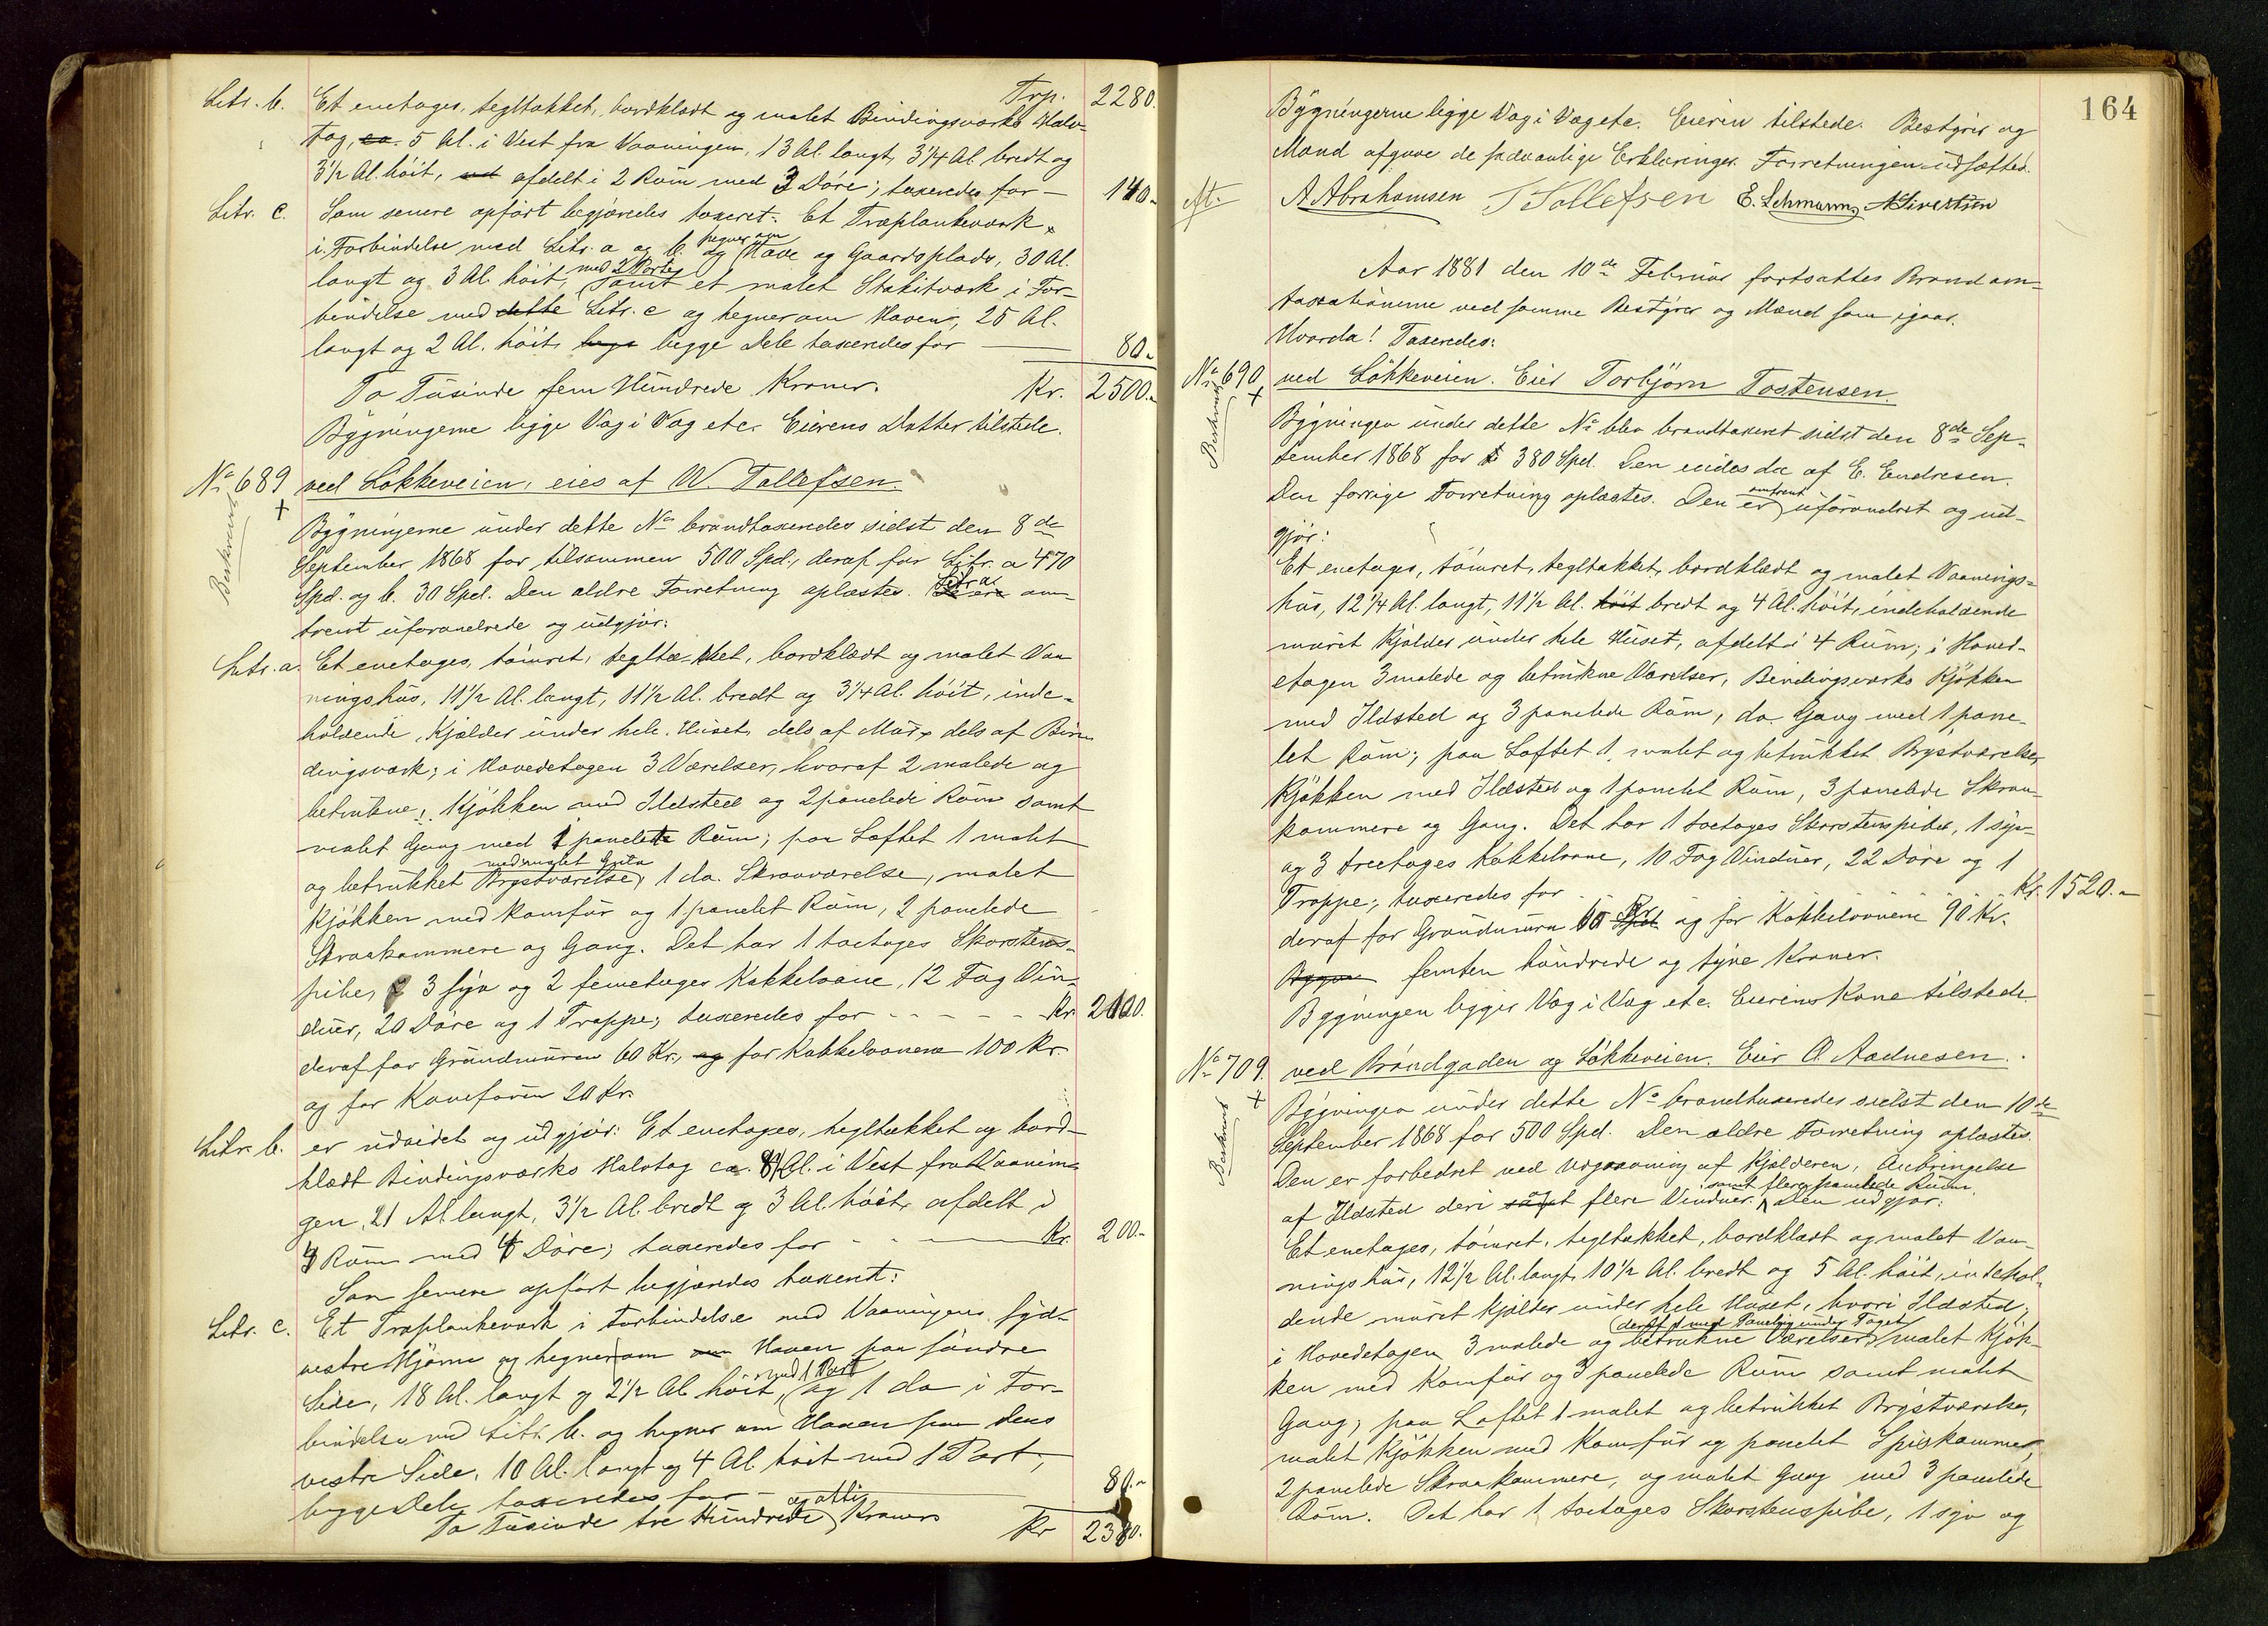 Trp. 2280.
Litr. b. Et enetages, tegltækket, bordklædt og malet Bindingsværks Halv-
tag, ca. 5 Al. i Vest fra Vaaningen, 13 Al. langt, 3 1/4 Al. bredt og
3 1/2 Al. höit, afdelt i 2 Rum med 3 Döre; taxeredes for — 140.-
Litr. c. Som senere opfört begjæredes taxeret: Et Træplankeværk
i Forbindelse med Litr. a og b. og hegner om Have og Gaardsplads, 30 Al.
langt og 3 Al. höit, med 2 Porte, samt et malet Stakitværk i For-
bindelse med dette Litr. c og hegner om Haven, 25 Al.
langt og 2 Al. höit, begge Dele taxeredes for — 80.-
To Tusinde fem Hundrede Kroner. Kr. 2500.-
Bygningerne ligge Væg i Væg etc. Eierens Datter tilstede.
No 689 ved Lökkeveien, eies af W. Tollefsen.
+
Beskreves
Bygningerne under dette No brandtaxeredes sidst den 8de
September 1868 for tilsammen 500 Spd., deraf for Litr. a 470
Spd. og b. 30 Spd. Den ældre Forretning oplæstes. Litr. a De ere om-
trent uforandrede og udgjör:
Litr. a. Et enetages, tömret, tegltækket, bordklædt og malet Vaa
ningshus, 11 1/2 Al. langt, 11 1/2 Al. bredt og 3 1/4 Al. höit, inde-
holdende, Kjælder under hele Huset, dels af Mur, dels af Bin
dingsværk; i Hovedetagen 3 Værelser, hvoraf 2 malede og
betrukne, Kjökken med Ildsted og 2 panelede Rum samt
malet Gang med 1 panelet Rum; paa Loftet 1 malet
og betrukket Brystværelse, med malet Gulv 1 do. Skraaværelse, malet
Kjökken med Komfur og 1 panelet Rum, 2 panelede
Skraakammere og Gang. Det har 1 toetages Skorstens-
pibe, 3 syv og 2 femetages Kakkelovne, 12 Fag Vin-
duer, 20 Döre og 1 Trappe; taxeredes for - - - - - Kr. 2100.
deraf for Grundmuren 60 Kr., og for Kakkelovnene 100 Kr.
og for Komfuren 20 Kr.
Litr. b. er udvidet og udgjör: Et enetages, tegltækket og bord-
klædt Bindingsværks Halvtag ca. 8 Al. i Vest fra Vaanin-
gen, 21 Al. langt, 3 1/2 Al. bredt og 3 Al. höit, afdelt i
4 Rum med 4 Döre; taxeredes for — Kr. 200.-
Som senere opfört begjæredes taxeret:
Litr. c. Et Træplankeværk i Forbindelse med Vaaningens syd-
vestre Hjörne og hegner om Haven paa söndre
Side, 18 Al. langt og 2 1/2 Al. höit, med 1 Port og 1 do i For-
bindelse med Litr. b. og hegner om Haven paa dens
vestre Side, 10 Al. langt og 4 Al. höit med 1 Port;
begge Dele taxeredes for — 80.-
To Tusinde tre Hundrede og otti Kroner Kr 2380.
164
Bygningerne ligge Væg i Væg etc. Eieren tilstede. Bestyrer og
Mænd afgave de sædvanlige Erklæringer. Forretningen udsættes.
A Abrahamsen T Tollefsen E. Lehmann, A Sivertsen
Aar 1881 den 10de Februar fortsattes Brandom-
taxationerne ved samme Bestyrer og Mænd som igaar.
Hvorda! Taxeredes:
No 690 ved Lökkeveien. Eier Torbjörn Tostensen.
+
Beskreves
Bygningen under dette No blev brandtaxeret sidst den 8de Sep-
tember 1868 for 380 Spd. Den eiedes da af E. Endresen.
Den forrige Forretning oplæstes. Den er omtrent uforandret og ud-
gjör:
Et enetages, tömret, tegltækket, bordklædt og malet Vaanings-
hus, 12 1/4 Al. langt, 11 1/2 Al. höit bredt og 4 Al. höit, indeholdende
muret Kjælder under hele Huset, afdelt i 4 Rum; i Hoved-
etagen 3 malede og betrukne Værelser, Bindingsværks Kjökken
med Ildsted og 3 panelede Rum, do. Gang med 1 pane-
let Rum; paa Loftet 1 malet og betrukket Brystværelse,
Kjökken med Ildsted og 1 panelet Rum, 3 panelede Skraa-
kammere og Gang. Det har 1 toetages Skorstenspibe, 1 syv-
og 3 treetages Kakkelovne, 10 Fag Vinduer, 22 Döre og 1
Trappe; taxeredes for - - Kr. 1520.-
deraf for Grundmuren 60 Kr. Spd. og for Kakkelovnene 90 Kr.
femten hundrede og tyve Kroner.
Bygningen ligger Væg i Væg etc. Eierens Kone tilstede
No 709. ved Bröndgaden og Lökkeveien. Eier O. Aadnesen.
+
Beskreves
Bygningen under dette No brandtaxeredes sidst den 10de
September 1868 for 500 Spd. Den ældre Forretning oplæstes.
Den er forbedret ved Udgravning af Kjælderen, Anbringelse
af Ildsted deri samt flere Vinduer, samt flere panelede Rum. Den udgjör:
Et enetages, tömret, tegltækket, bordklædt og malet Vaa-
ningshus, 12 1/2 Al. langt, 10 1/2 Al. bredt og 5 Al. höit, indehol-
dende muret Kjælder under hele Huset, hvori Ildsted;
i Hovedetagen 3 malede og betrukne Værelser, (deraf 1 med Paneling under Taget) malet Kjök-
ken med Komfur og 3 panelede Rum samt malet
Gang; paa Loftet 1 malet og betrukket Brystværelse,
malet Kjökken med Komfur og panelet Spiskammer,
2 panelede Skraakammere, og malet Gang med 3 panelede
Rum. Det har 1 toetages Skorstenspibe, 1 syv og